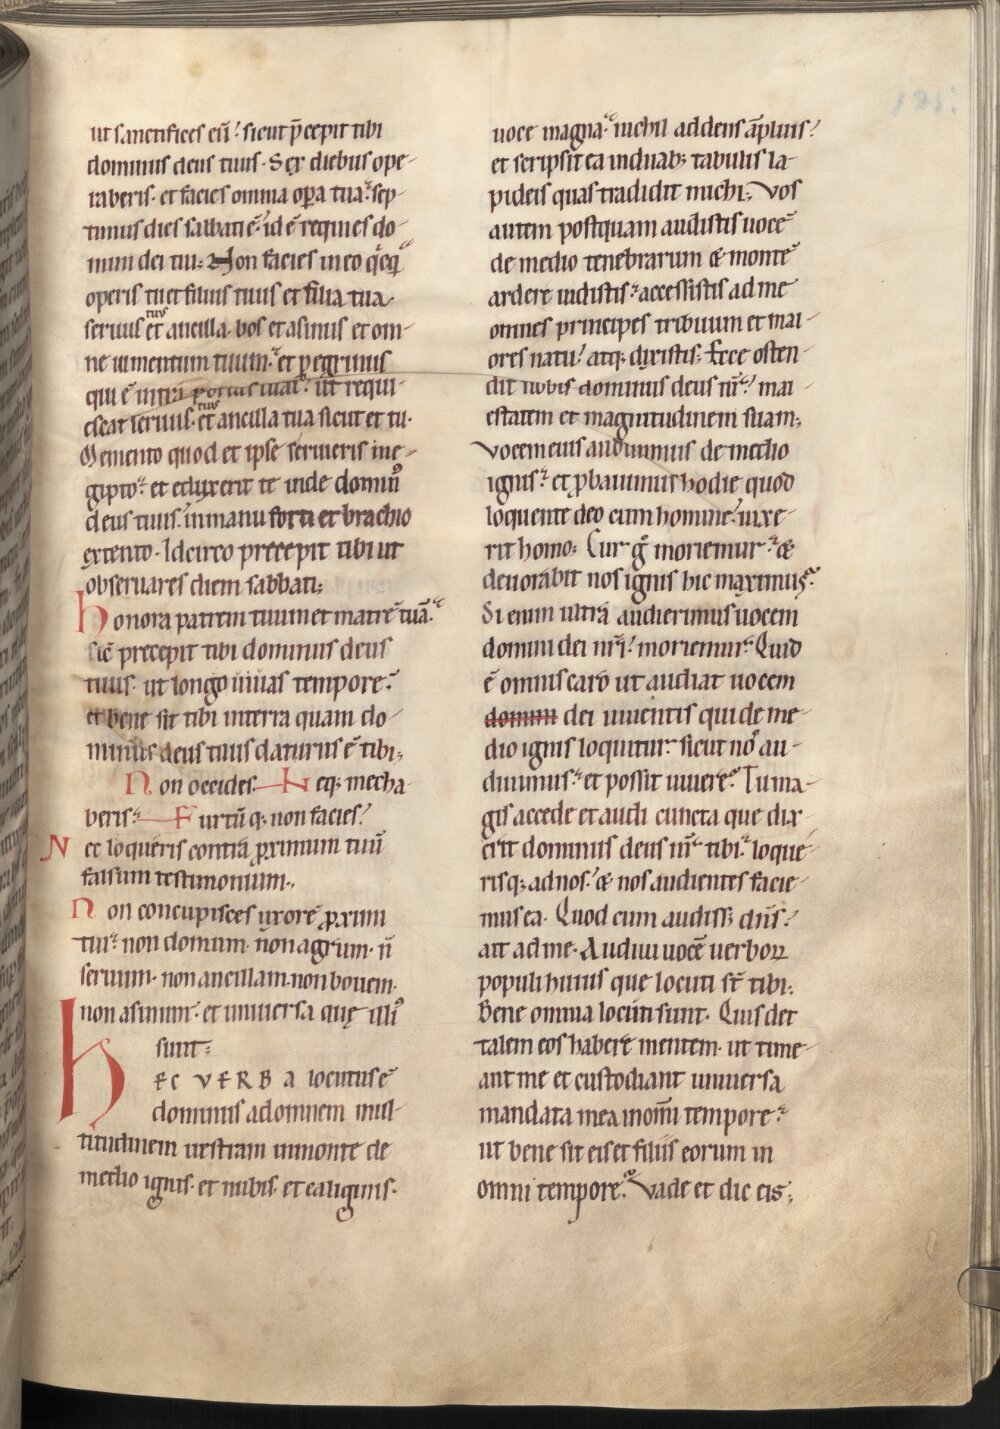 ut sanctifices eū. sicut p̄cepit tibi
dominus deus tuus. Sex diebus ope-
raberis. et facies omnia oꝑa tua. sep-
timus dies sabbati ē. id ē requies do-
mini dei tui. Non facies in eo qͥcqͣ
operis tu et filius tuus et filia tua.
seruus tuus et ancilla. bos et asinus et om-
ne iumentum tuum. et ꝑegrinus
qui ē intra portas tuas. ut requi-
escat seruus. tuus et ancilla tua sicut et tu.
Memento quod et ipse seruieris in e-
gipto. et eduxerit te inde dominꝰ
deus tuus. in manu forti et brachio
extento. Idcirco precepit tibi ut
obseruares diem sabbati.
honora patrem tuum et matrē tuā.
sic̄ precepit tibi dominus deus
tuus. ut longo uiuas tempore.
et bene sit tibi in terra quam do-
minus deus tuus daturus ē tibi.
Non occides. Neq; mecha-
beris. Furtūq; non facies.
Nec loqueris contra ꝓximum tuū
falsum testimonium.
Non concupisces uxorē ꝓximi
tui. non domum. non agrum. n̄
seruum. non ancillam. non bouem.
non asinum. et uniuersa quę illiꝰ
sunt.
HEC VERBA locutus ē
dominus ad omnem mul-
titudinem uestram in monte de
medio ignis. et nubis. et caliginis.
uoce magna. nichil addens āplius.
et scripsit ea in duab; tabulis la-
pideis quas tradidit michi. Vos
autem postquam audistis uocē
de medio tenebrarum & montē
ardere uidistis. accessistis ad me
omnes principes tribuum et mai-
ores natu. atq; dixistis. Ecce osten-
dit nobis dominus deus nr̄. mai-
estatem et magnitudinem suam.
vocem eius audiuimus de medio
ignis. et ꝓbauimus hodie quod
loquente deo cum homine. uixe-
rit homo. Cur gͦ moriemur. &
deuorabit nos ignis hic maximus.
Si enim ultra audierimus uocem
domini dei nr̄i. moriemur. Quid
ē omnis caro ut audiat uocem
domini dei uiuentis qui de me-
dio ignis loquitur. sicut nos au-
diuimus. et possit uiuere. Tu ma-
gis accede et audi cuncta que dix-
erit dominus deus nr̄ tibi. loque-
risq; ad nos. & nos audientes facie-
mus ea. Quod cum audiss; dn̄s.
ait ad me. Audiui uocē uerboꝝ
populi huius que locuti st̄ tibi.
Bene omnia locuti sunt. Quis det
talem eos habere mentem. ut time-
ant me et custodiant uniuersa
mandata mea in om̄i tempore.
ut bene sit eis et filiis eorum in
omni tempore. Vade et dic eis.